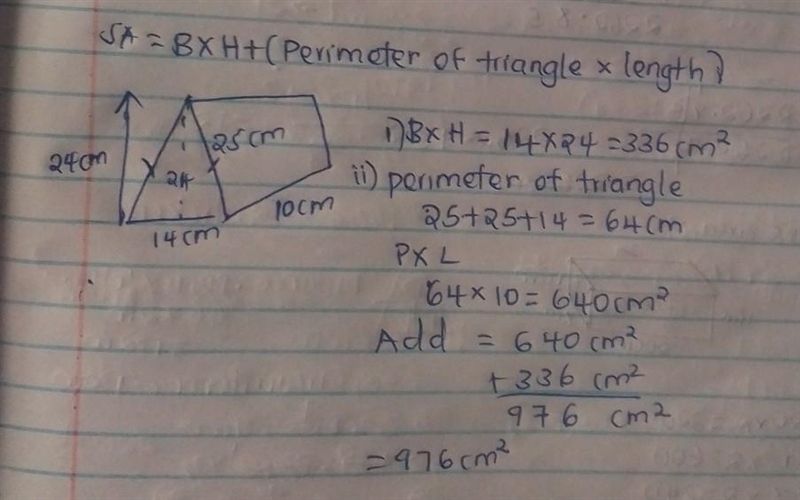 SA = B×H+(Perimeter of triangle × length)
24cm
25cm
24
10cm
14cm
i) B×H = 14×24 = 336cm²
ii) perimeter of triangle
25+25+14 = 64cm
P×L
64×10 = 640cm²
Add = 640cm²
+336 cm²
976 cm²
= 976cm²